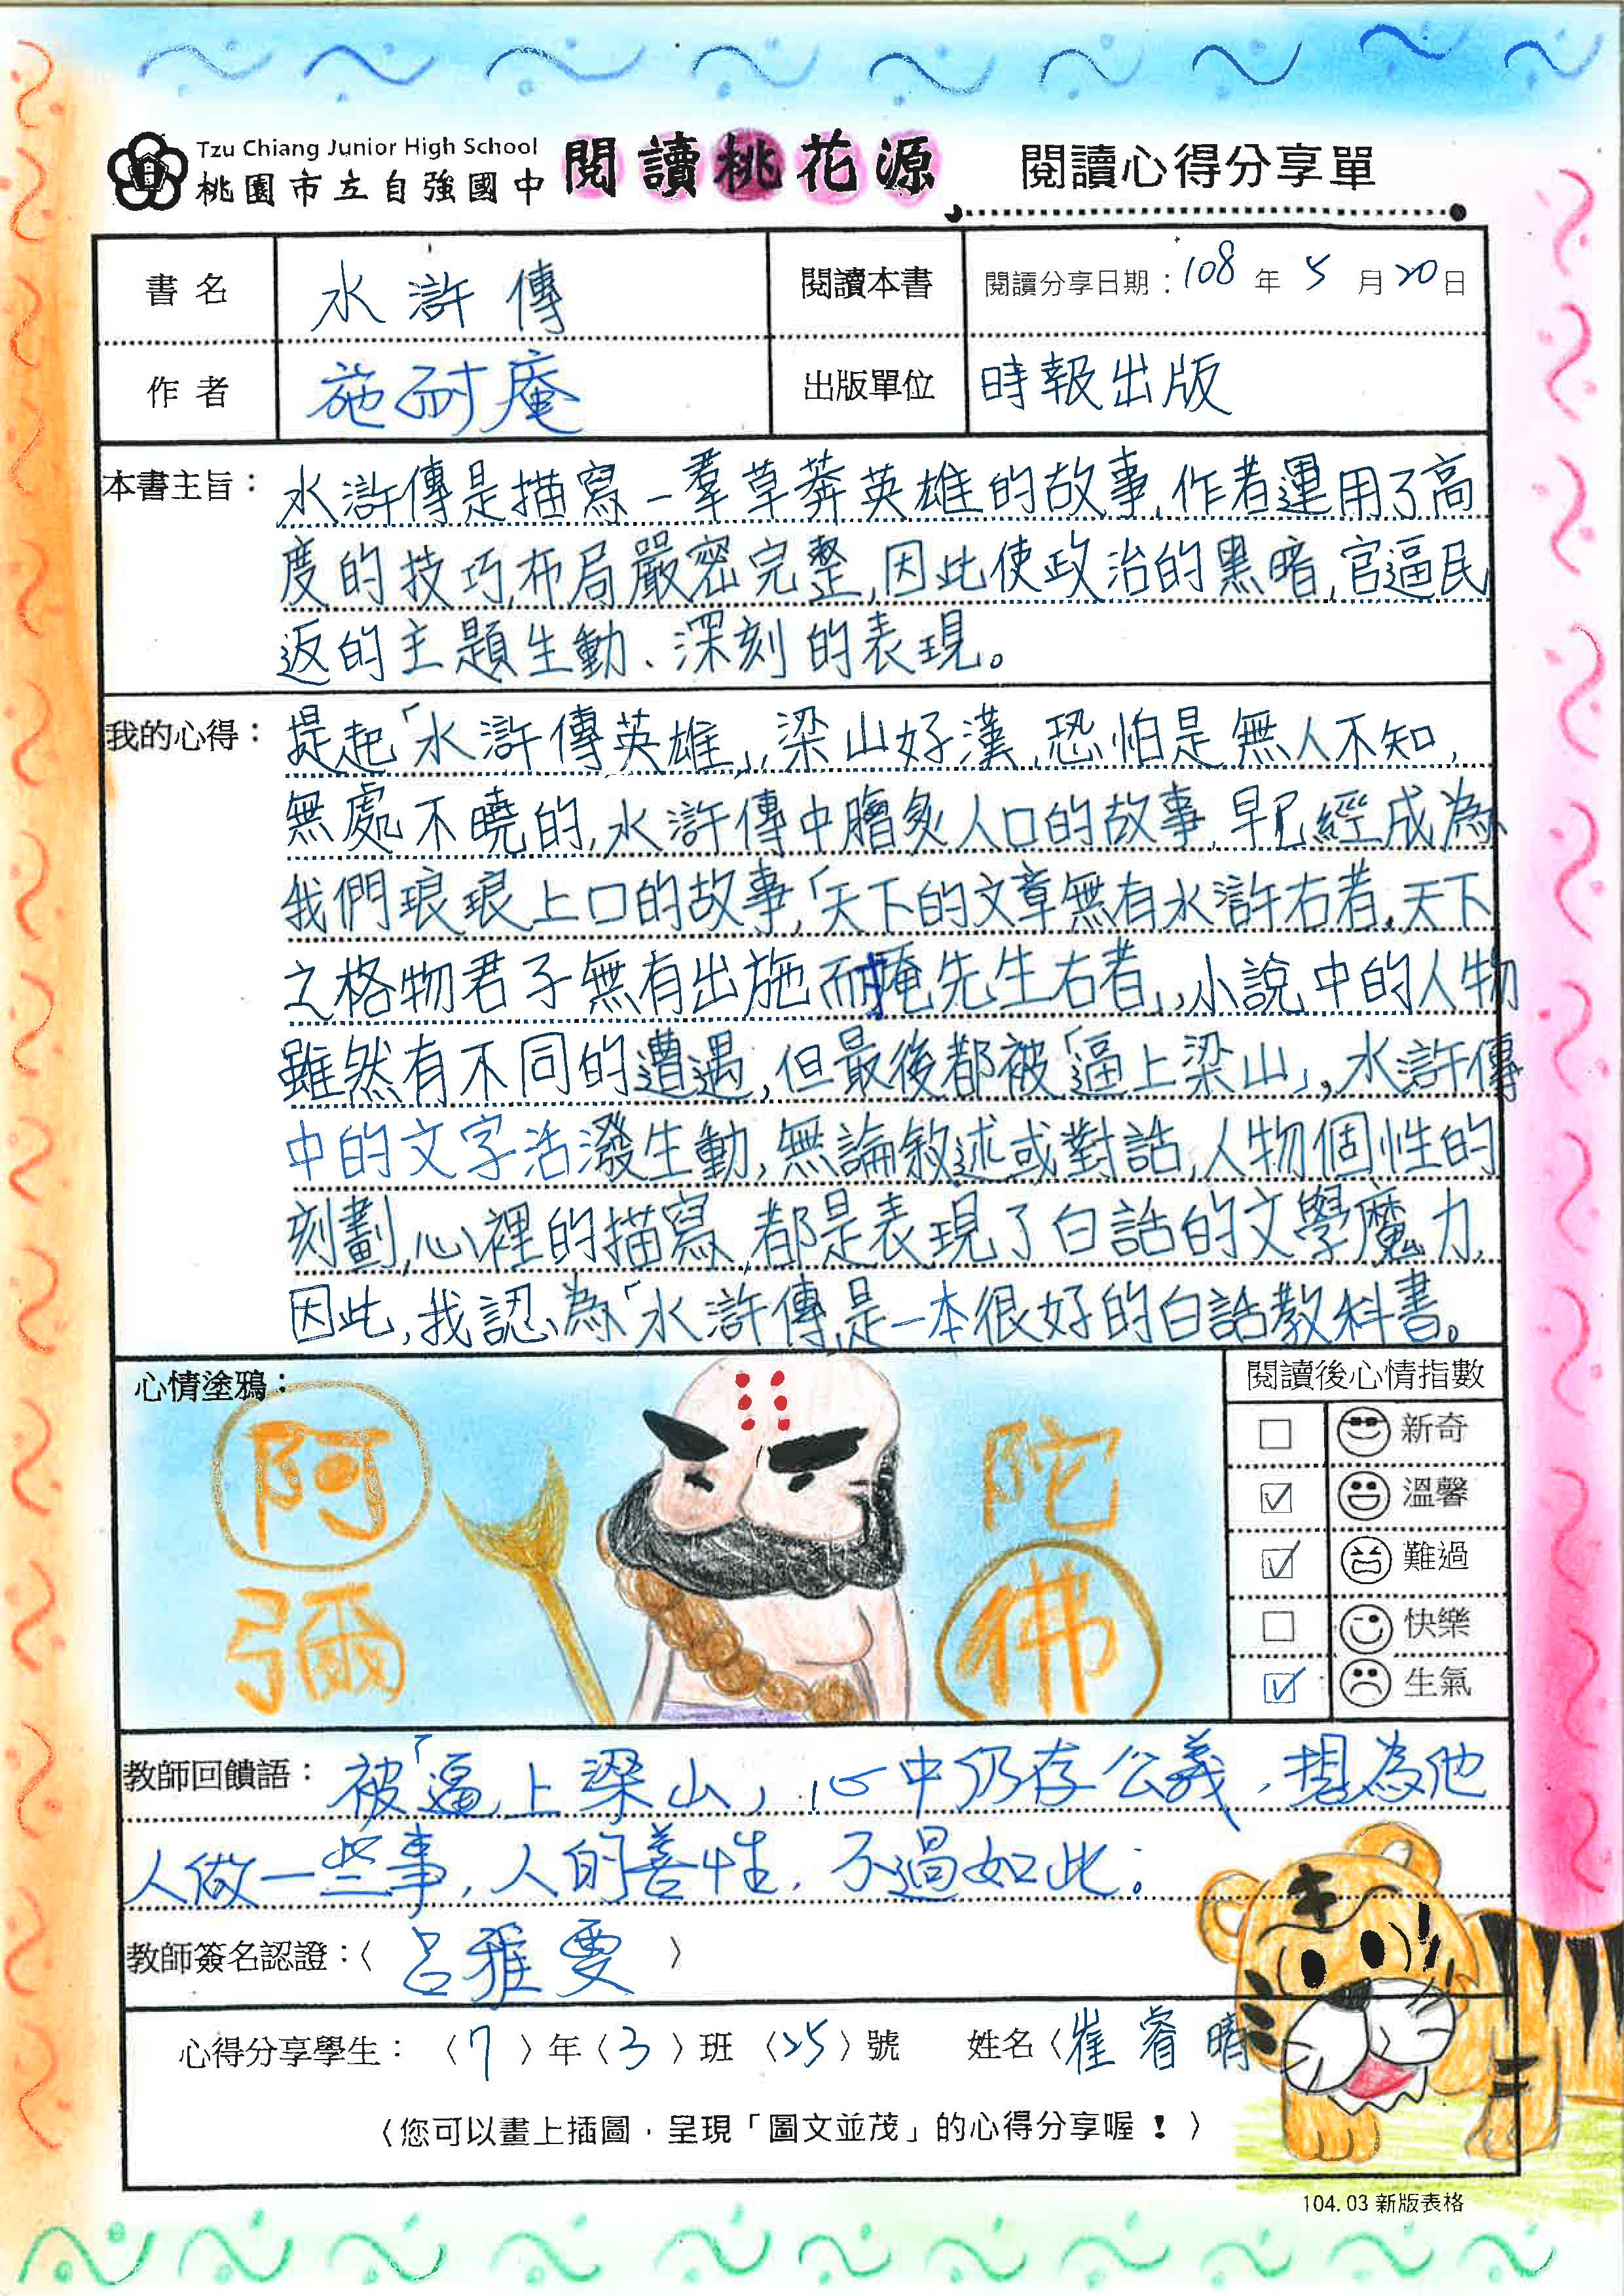 Tzu Chiang Junior High School
桃園市立自強國中
閱讀桃花源
閱讀心得分享單
書名 水滸傳 閱讀本書 閱讀分享日期：108年5月20日
作者 施耐庵 出版單位 時報出版
本書主旨：水滸傳是描寫一羣草莽英雄的故事,作者運用了高
度的技巧,布局嚴密完整,因此使政治的黑暗,官逼民
返的主題生動、深刻的表現。
我的心得：提起「水滸傳英雄」,梁山好漢,恐怕是無人不知,
無處不曉的,水滸傳中膾炙人口的故事,早已經成為
我們琅琅上口的故事,「天下的文章無有水滸右者,天下
之格物君子無有出施耐掩先生右者」,小說中的人物
雖然有不同的遭遇,但最後都被「逼上梁山」,水滸傳
中的文字活潑生動,無論敘述或對話,人物個性的
刻劃,心裡的描寫,都是表現了白話的文學魔力,
因此,我認為「水滸傳是一本很好的白話教科書。
心情塗鴉：
阿
彌
陀
佛
閱讀後心情指數
☐ 新奇
☑ 溫馨
☑ 難過
☐ 快樂
☑ 生氣
教師回饋語：被「逼上梁山」,心中仍存公義,想為他
人做一些事,人的善性,不過如此。
教師簽名認證：〈呂雅雯〉
心得分享學生：〈7〉年〈3〉班〈25〉號 姓名〈崔睿晴
〈您可以畫上插圖，呈現「圖文並茂」的心得分享喔！〉
104.03 新版表格